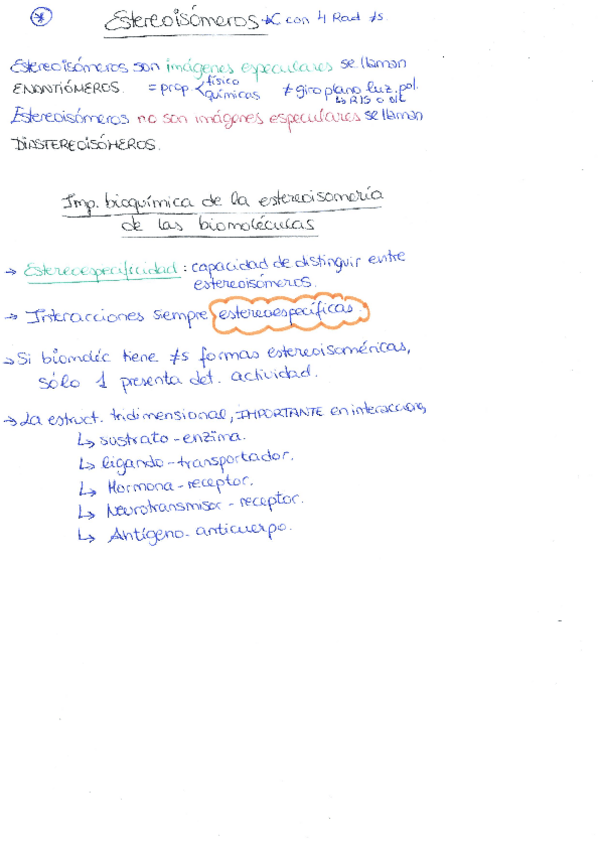 * Estereoisómeros *C con 4 Rad ≠s.
Estereoisómeros son imágenes especulares se llaman
ENANTIÓMEROS. = prop. físico químicas ≠ giro plano luz pol.
↳ R/S o D/L
Estereoisómeros no son imágenes especulares se llaman
DIASTEREOISÓMEROS.
Imp. bioquímica de la estereoisomería
de las biomoléculas
→ Estereoespecificidad: capacidad de distinguir entre
estereoisómeros.
→ Interacciones siempre estereoespecíficas.
→ Si bioméc tiene ≠s formas estereoisoméricas,
sólo 1 presenta det. actividad.
→ La estruct. tridimensional, IMPORTANTE en interaccions,
↳ sustrato - enzima.
↳ ligando - transportador.
↳ Hormona - receptor.
↳ Neurotransmisor - receptor.
↳ Antígeno - anticuerpo.